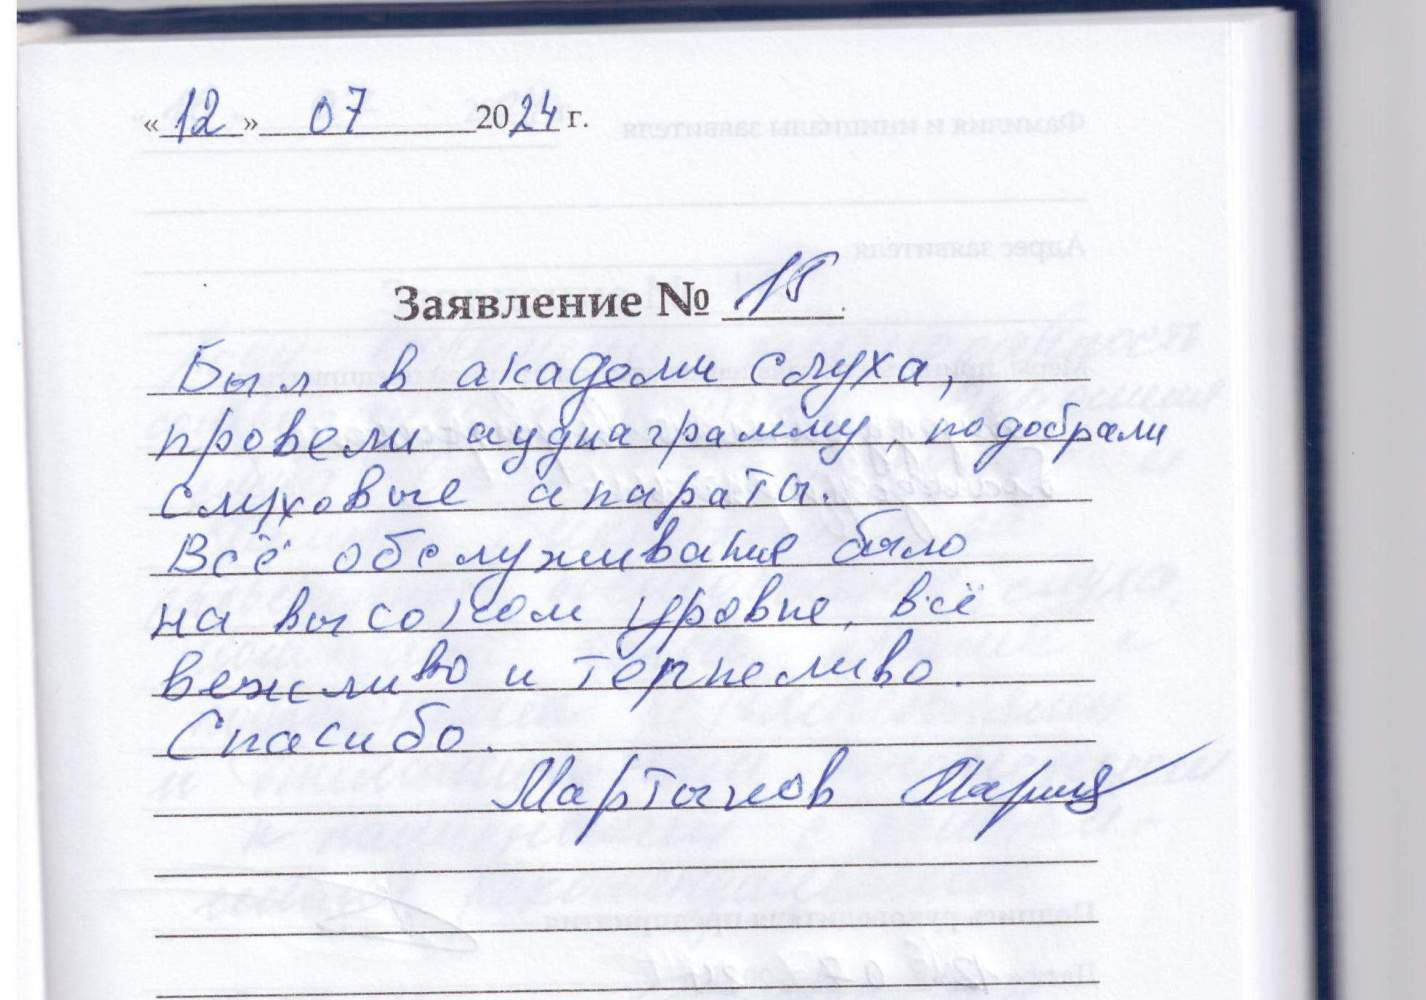 «12» 07 2024 г.
Заявление № 18
Был в академи слуха,
провели аудиаграмму, подобрали
слуховые апараты.
Всё обслуживание было
на высоком уровне, всё
вежливо и терпеливо.
Спасибо.
Мартынов